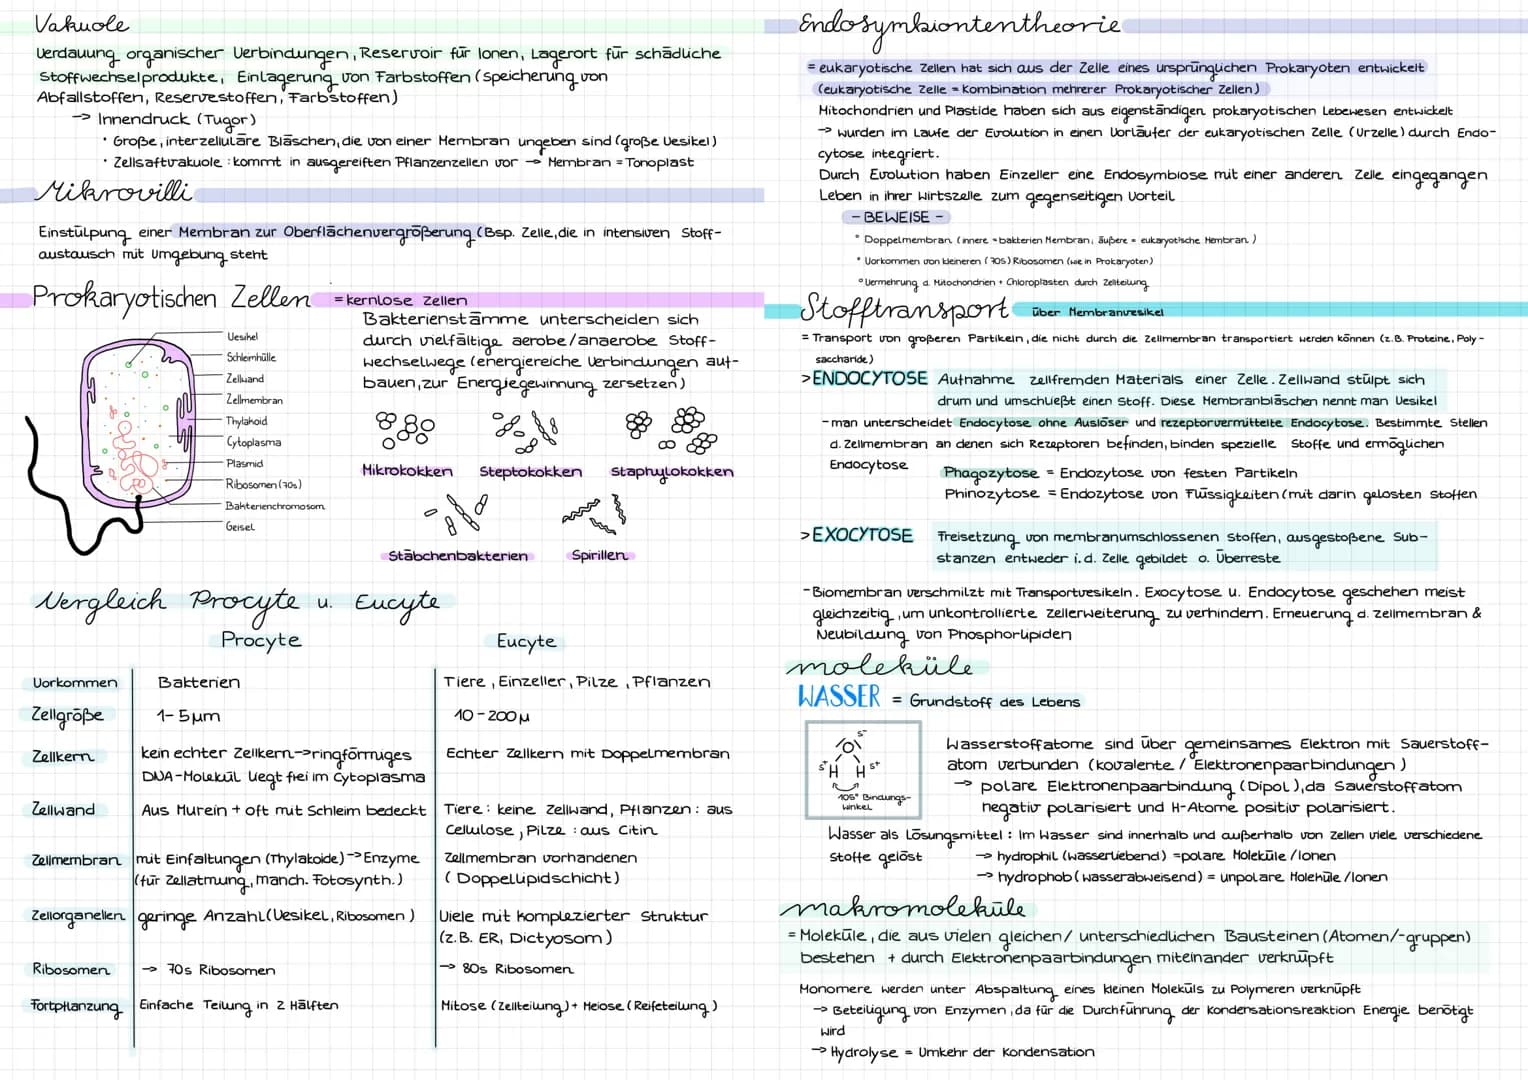 Vakuole
Verdauung organischer Verbindungen, Reservoir für Ionen, Lagerort für schädliche
Stoffwechselprodukte, Einlagerung von Farbstoffen (speicherung von
Abfallstoffen, Reservestoffen, Farbstoffen)
→ Innendruck (Tugor)
• Große, interzelluläre Bläschen, die von einer Membran umgeben sind (große Vesikel)
• Zellsaftvakuole : kommt in ausgereiften Pflanzenzellen vor → Membran = Tonoplast
Mikrovilli
Einstülpung einer Membran zur Oberflächenvergrößerung (Bsp. Zelle, die in intensiven Stoff-
austausch mit Umgebung steht
Prokaryotischen Zellen = kernlose Zellen
Bakterienstämme unterscheiden sich
durch vielfältige aerobe/anaerobe Stoff-
wechselwege (energiereiche Verbindungen auf-
bauen, zur Energiegewinnung zersetzen)
Vesikel
Schleimhülle
Zellwand
Zellmembran
Thylakoid
Cytoplasma
Plasmid
Ribosomen (70s)
Bakterienchromosom
Geisel
Mikrokokken Steptokokken Staphylokokken
Stäbchenbakterien Spirillen
Vergleich Procyte u. Eucyte
Procyte Eucyte
Vorkommen Bakterien Tiere, Einzeller, Pilze, Pflanzen
Zellgröße 1-5μm 10-200μ
Zellkern kein echter Zellkern → ringförmiges Echter Zellkern mit Doppelmembran
DNA-Molekül liegt frei im Cytoplasma
Zellwand Aus Murein + oft mit Schleim bedeckt Tiere : keine Zellwand, Pflanzen : aus
Cellulose, Pilze : aus Citin
Zellmembran mit Einfaltungen (Thylakoide) → Enzyme Zellmembran vorhandenen
(für Zellatmung, manch. Fotosynth.) (Doppellipidschicht)
Zellorganellen geringe Anzahl (Vesikel, Ribosomen) Viele mit komplezierter Struktur
(z.B. ER, Dictyosom)
Ribosomen → 70s Ribosomen → 80s Ribosomen
Fortpflanzung Einfache Teilung in 2 Hälften Mitose (Zellteilung) + Meiose (Reifeteilung)
Endosymbiontentheorie
= eukaryotische Zellen hat sich aus der Zelle eines ursprünglichen Prokaryoten entwickelt
(eukaryotische Zelle = Kombination mehrerer Prokaryotischer Zellen)
Mitochondrien und Plastide haben sich aus eigenständigen prokaryotischen Lebewesen entwickelt
→ wurden im Laufe der Evolution in einen Vorläufer der eukaryotischen Zelle (Urzelle) durch Endo-
cytose integriert.
Durch Evolution haben Einzeller eine Endosymbiose mit einer anderen Zelle eingegangen
Leben in ihrer Wirtszelle zum gegenseitigen Vorteil
- BEWEISE -
° Doppelmembran (innere = bakterien Membran; äußere = eukaryotische Membran)
• Vorkommen von kleineren (70S) Ribosomen (wie in Prokaryoten)
° Vermehrung d. Mitochondrien + Chloroplasten durch Zellteilung
Stofftransport über Membranvesikel
= Transport von großeren Partikeln, die nicht durch die Zellmembran transportiert werden können (z.B. Proteine, Poly-
saccharide)
> ENDOCYTOSE Aufnahme zellfremden Materials einer Zelle. Zellwand stülpt sich
drum und umschließt einen Stoff. Diese Membranbläschen nennt man Vesikel
- man unterscheidet Endocytose ohne Auslöser und rezeptorvermittelte Endocytose. Bestimmte Stellen
d. Zellmembran an denen sich Rezeptoren befinden, binden spezielle Stoffe und ermöglichen
Endocytose
Phagozytose = Endozytose von festen Partikeln
Phinozytose = Endozytose von Flüssigkeiten (mit darin gelosten Stoffen
> EXOCYTOSE Freisetzung von membranumschlossenen Stoffen, ausgestoßene Sub-
stanzen entweder i.d. Zelle gebildet o. Überreste
- Biomembran verschmilzt mit Transportvesikeln. Exocytose u. Endocytose geschehen meist
gleichzeitig, um unkontrollierte Zellerweiterung zu verhindern. Erneuerung d. Zellmembran &
Neubildung von Phosphorlipiden
moleküle
WASSER = Grundstoff des Lebens
s⁻
O
s⁺ H H s⁺
105° Bindungs-
winkel
Wasserstoffatome sind über gemeinsames Elektron mit Sauerstoff-
atom verbunden (kovalente / Elektronenpaarbindungen)
→ polare Elektronenpaarbindung (Dipol), da Sauerstoffatom
negativ polarisiert und H-Atome positiv polarisiert.
Wasser als Lösungsmittel : Im Wasser sind innerhalb und außerhalb von Zellen viele verschiedene
Stoffe gelöst → hydrophil (wasserliebend) = polare Moleküle / Ionen
→ hydrophob (wasserabweisend) = unpolare Moleküle / Ionen
makromoleküle
= Moleküle, die aus vielen gleichen/ unterschiedlichen Bausteinen (Atomen/-gruppen)
bestehen + durch Elektronenpaarbindungen miteinander verknüpft
Monomere werden unter Abspaltung eines kleinen Moleküls zu Polymeren verknüpft
→ Beteiligung von Enzymen, da für die Durchführung der Kondensationsreaktion Energie benötigt
wird
→ Hydrolyse = Umkehr der Kondensation